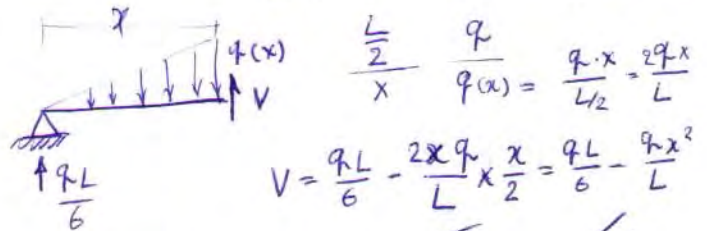 x
q(x)
V
qL/6
L/2 q
x q(x) = q·x / L/2 = 2qx / L
V = qL/6 - 2xq/L × x/2 = qL/6 - qx²/L